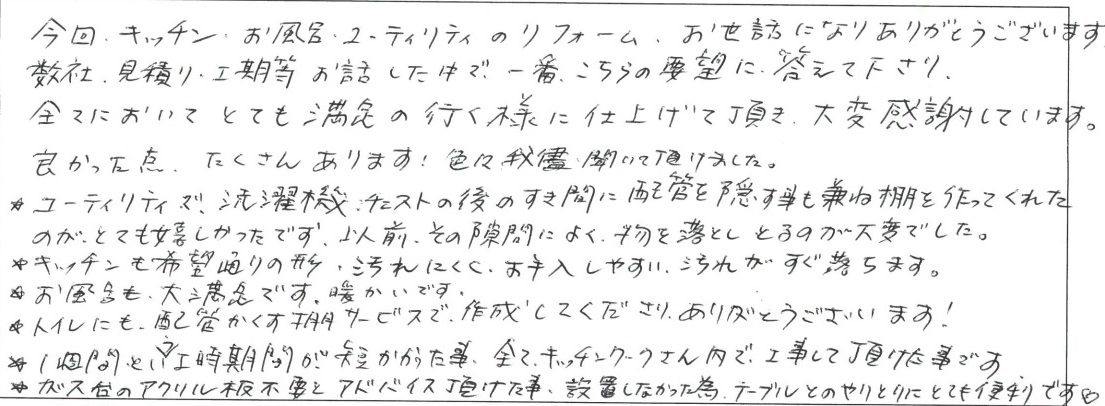 今回、キッチン・お風呂・ユーティリティのリフォーム、お世話になりありがとうございます
数社、見積り・工期等お話した中で、一番、こちらの要望に、答えて下さり、
全てにおいてとても満足の行く様に仕上げて頂き、大変感謝しています。
良かった点、たくさんあります！色々我儘聞いて頂けました。
*ユーティリティで、洗濯機、チェストの後のすき間に配管を隠す事も兼ね棚を作ってくれた
のが、とても嬉しかったです、以前、その隙間によく、物を落としとるのが大変でした。
*キッチンも希望通りの形、汚れにくく、お手入しやすい、汚れがすぐ落ちます。
*お風呂も、大満足です。暖かいです。
*トイレにも、配管かくす棚サービスで、作成してくださり、ありがとうございます！
*1週間という工時期間が短かかった事、全て、キッチンワークさん内で、工事して頂けた事です
*ガス台のアクリル板不要とアドバイス頂けた事、設置しなかった為、テーブルとのやりとりにとても便利です